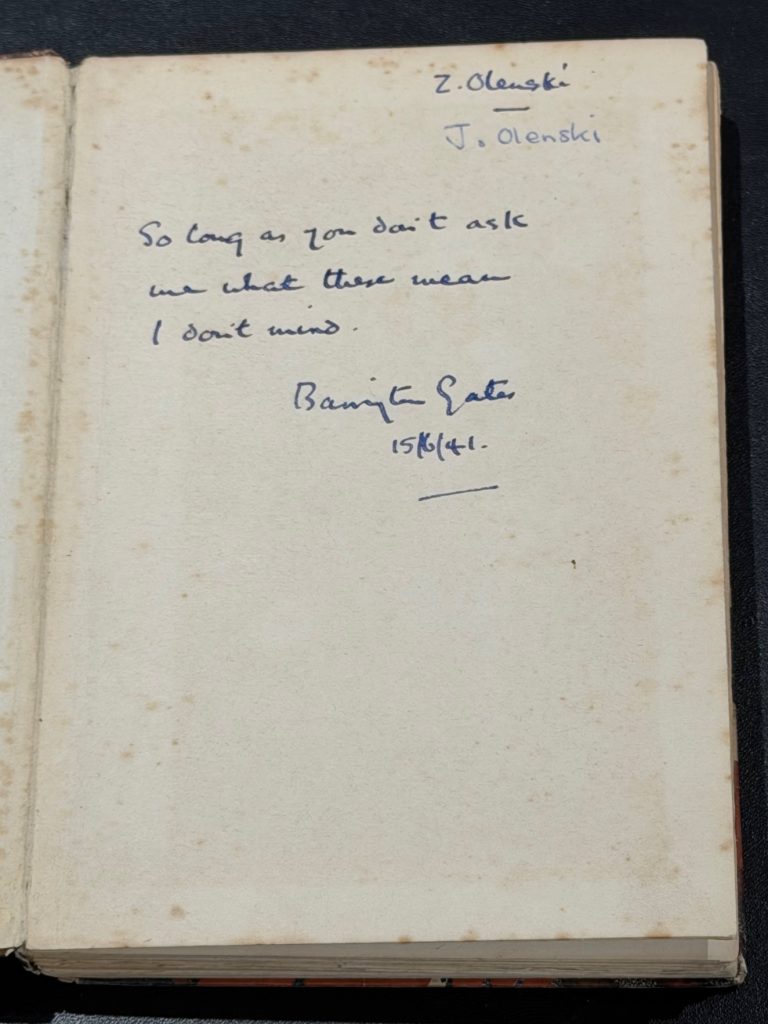 Z. Olenski
J. Olenski
So long as you don't ask
me what these mean
I don't mind.
Barrington Gates
15/6/41.